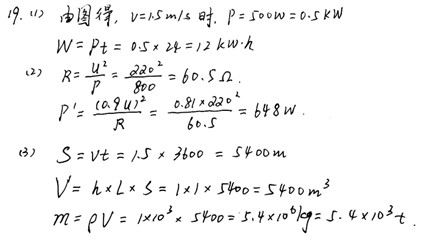 19. (1) 由图得, v=1.5m/s 时, P=500W=0.5KW
W=Pt=0.5×24=12 KW·h
(2) R=U²/P=220²/800=60.5Ω.
P'=(0.9U)²/R=0.81×220²/60.5=648W.
(3) S=vt=1.5×3600=5400m
V=h×L×S=1×1×5400=5400m³
m=ρV=1×10³×5400=5.4×10⁶kg=5.4×10³t.